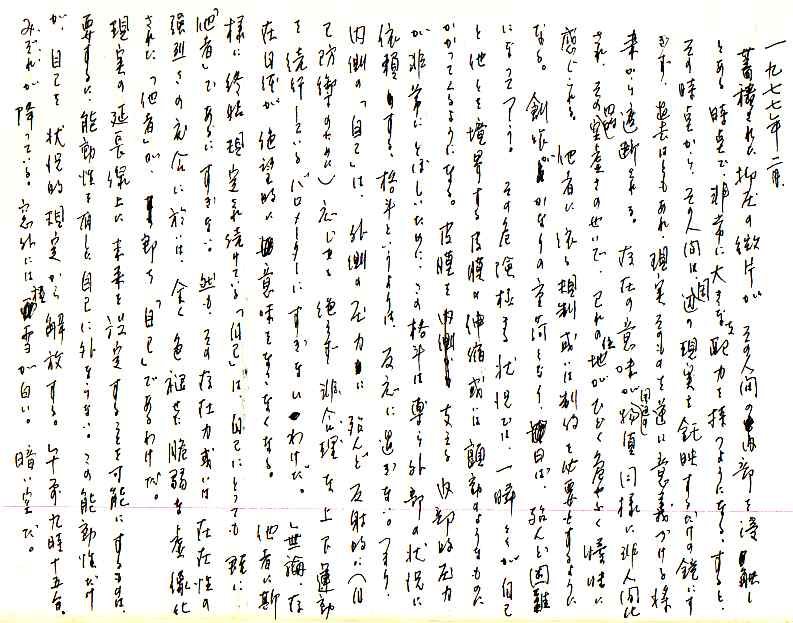 一九七七年二月
蓄積された抑圧の微片が、その人間の内部を浸蝕し
とある時点で、非常に大きな支配力を採つようになる。すると、
その時点から、その人間は、周辺の現実を、鈍映するだけの鏡にす
ぎず、過去はともあれ、現実そのものを逆に意義づける様
来から遮断される。存在の意味が物質同様に非人間化
され、その空虚さのせいで、己れの位地がひどく危やふく曖昧に
感じられる。他者に依る規制或いは制約を必要とするように
なる。創造がかなりの重荷となり、殆んど困難
になってしまう。その危険極まる状況では、一瞬とくが自己
と他とを境界する皮膜の伸縮或いは顫動のようなものに
かかってくるようになる。皮膜を支える内部的圧力
が非常にとぼしいために、この格斗は専ら外部の状況に
依頼する。格斗というよりは、反応に過ぎない。つまり、
内側の「自己」は、外側の圧力に殆んど反射的に(自
己防禦のために)応じつつ、絶えず非合理な上下運動
を続行しているバロメーターにすぎないわけだ。無論、存
在自体が絶望的に無意味をなさなくなる。他者に斯
様に終始規定され続けている「自己」は、自己にとっても既に
「他者」であるにすぎない。然も、その存在力或いは存在性の
強烈さの度合に於いては、全く色褪せた脆弱な虚像化
された「他者」が、即ち「自己」であるわけだ。
現実の延長線上に未来を設定することを可能にするものは、
要するに、能動性を有した自己に外ならない。この能動性だけ
が、自己を状況的規定から解放する。午前九時十五分。
みぞれが降っている。窓外には雪が白い。暗い空だ。